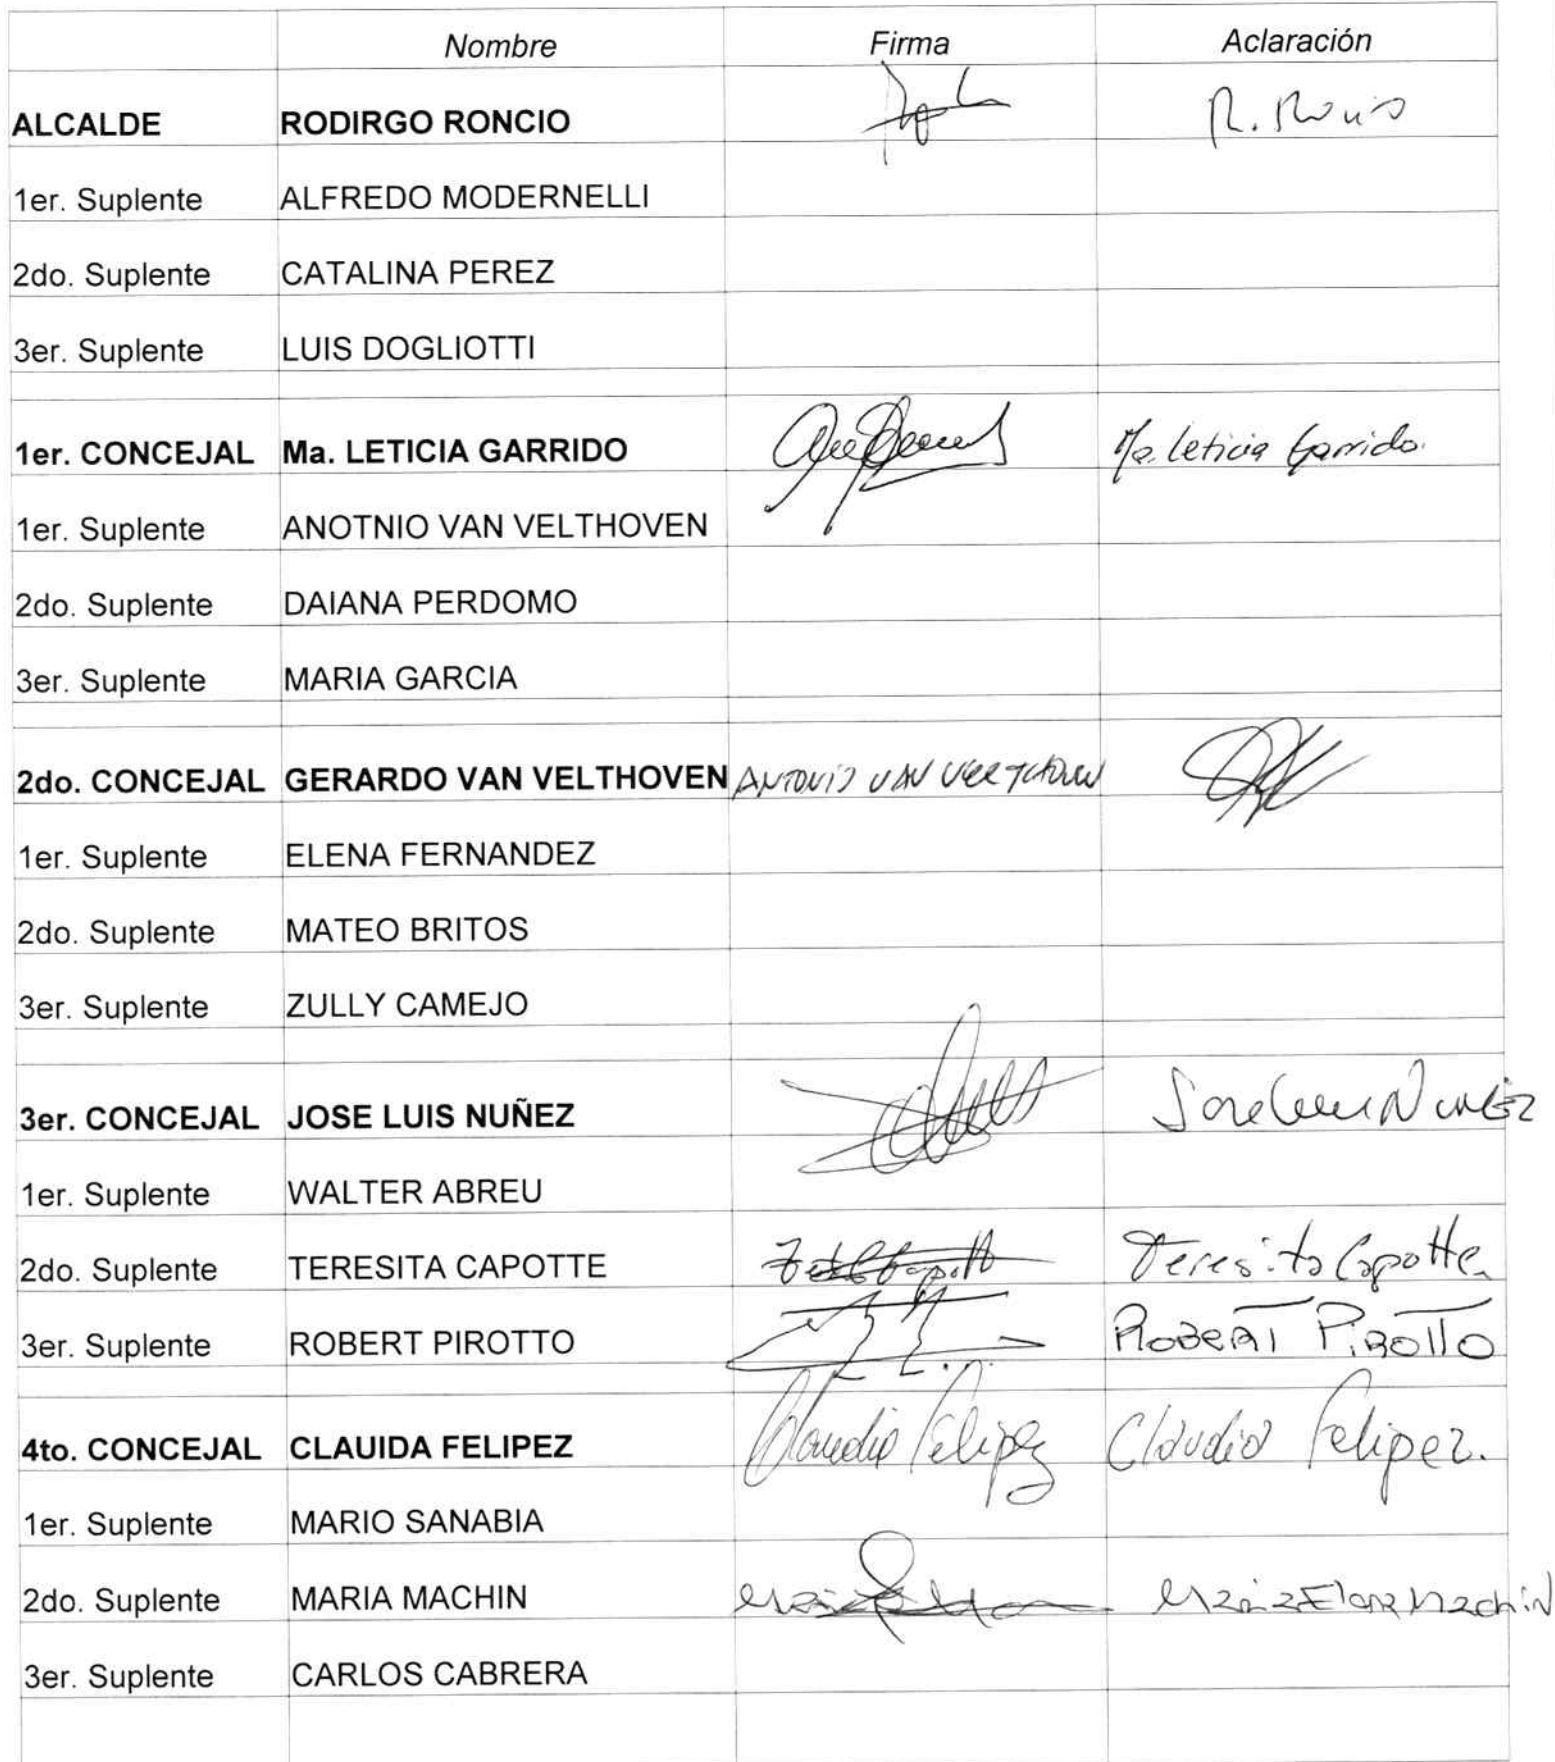 Nombre Firma Aclaración
ALCALDE RODIRGO RONCIO R.
1er. Suplente ALFREDO MODERNELLI
2do. Suplente CATALINA PEREZ
3er. Suplente LUIS DOGLIOTTI
1er. CONCEJAL Ma. LETICIA GARRIDO Ma. Leticia Garrido.
1er. Suplente ANOTNIO VAN VELTHOVEN
2do. Suplente DAIANA PERDOMO
3er. Suplente MARIA GARCIA
2do. CONCEJAL GERARDO VAN VELTHOVEN ANTONIO VAN
1er. Suplente ELENA FERNANDEZ
2do. Suplente MATEO BRITOS
3er. Suplente ZULLY CAMEJO
3er. CONCEJAL JOSE LUIS NUÑEZ Jose Luis Nuñez
1er. Suplente WALTER ABREU
2do. Suplente TERESITA CAPOTTE Teresita Capotte
3er. Suplente ROBERT PIROTTO ROBERT PIROTTO
4to. CONCEJAL CLAUIDA FELIPEZ Claudia Felipez Claudia Felipez.
1er. Suplente MARIO SANABIA
2do. Suplente MARIA MACHIN Maria Elena Machin
3er. Suplente CARLOS CABRERA